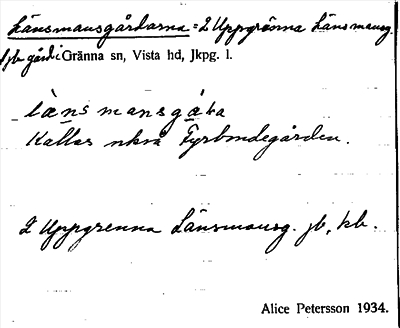 Länsmansgårdarna = 2 Uppgränna Länsmansg.
jb gård i Gränna sn, Vista hd, Jkpg. l.
länsmansgåɹa
Kallas också Fyrbondegården.
2 Uppgrenna Länsmansg. jb, kb.
Alice Petersson 1934.